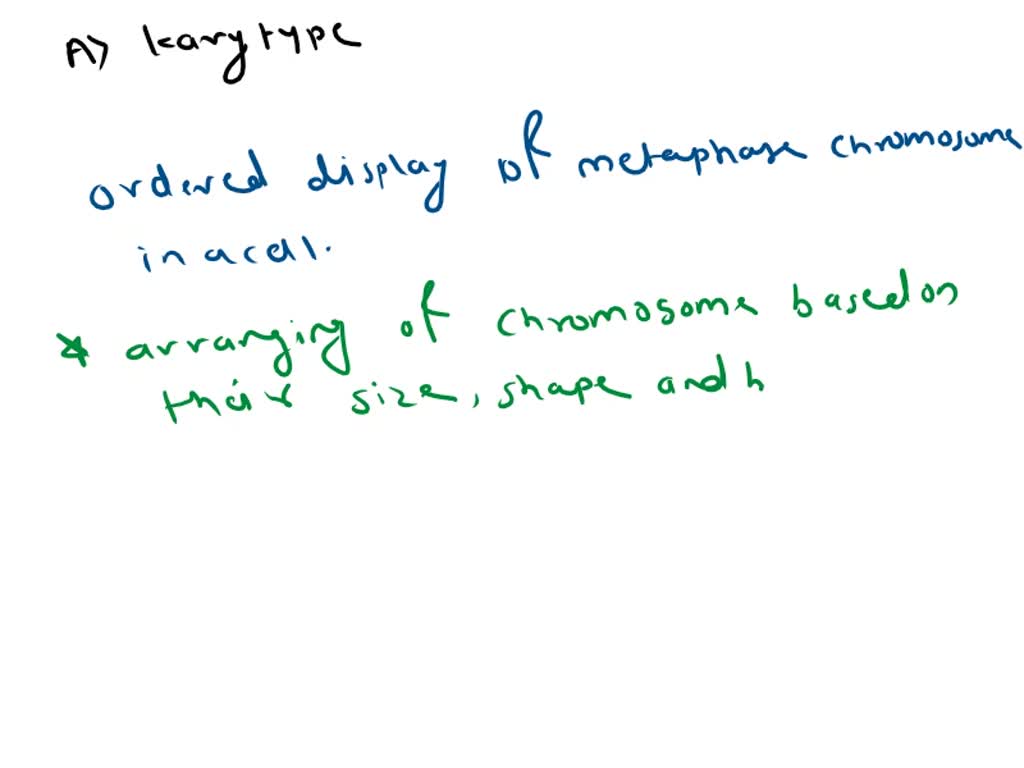 A) karytype
ordered display of metaphase chromosome
in a cell.
* arranging of chromosome based on
their size, shape and h